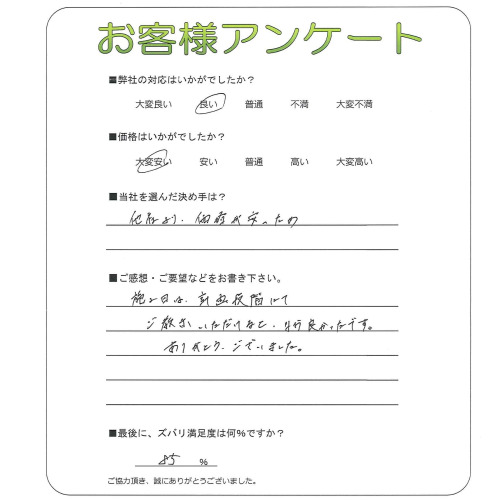 お客様アンケート
■弊社の対応はいかがでしたか？
大変良い 良い 普通 不満 大変不満
■価格はいかがでしたか？
大変安い 安い 普通 高い 大変高い
■当社を選んだ決め手は？
他社より、価格が安ったの
■ご感想・ご要望などをお書き下さい。
施工日は、計画段階にて
ご教えいただけると、より良かったです。
ありがとうございました。
■最後に、ズバリ満足度は何％ですか？
85 ％
ご協力頂き、誠にありがとうございました。